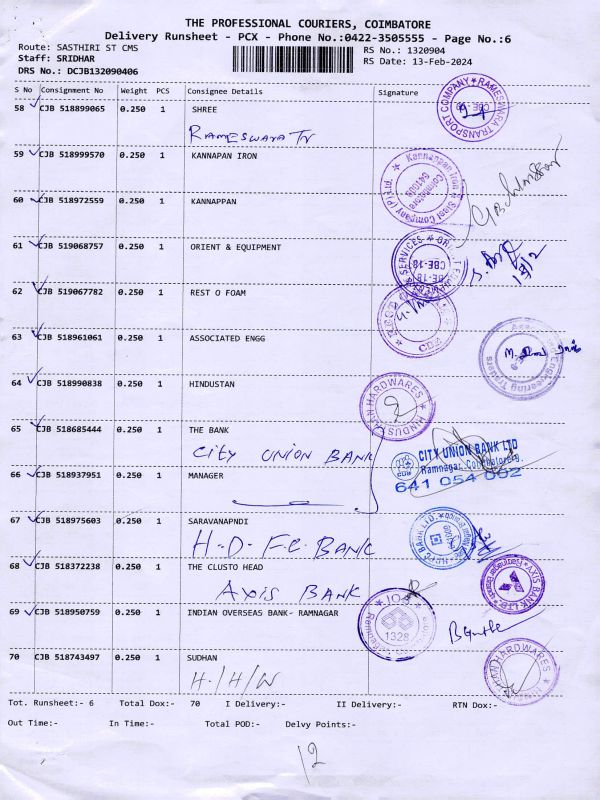 THE PROFESSIONAL COURIERS, COIMBATORE
Delivery Runsheet - PCX - Phone No.:0422-3505555 - Page No.:6
Route: SASTHIRI ST CMS RS No.: 1320904
Staff: SRIDHAR RS Date: 13-Feb-2024
DRS No.: DCJB132090406
S No Consignment No Weight PCS Consignee Details Signature
58 CJB 518899065 0.250 1 SHREE
RAMESWARA TR
RAMESWARA TRANSPORT COMPANY
59 CJB 518999570 0.250 1 KANNAPAN IRON
Kannappan Iron Steel Company (P) Ltd.
Coimbatore
60 CJB 518972559 0.250 1 KANNAPPAN
61 CJB 519068757 0.250 1 ORIENT & EQUIPMENT
SERVICES
CBE-18
62 CJB 519067782 0.250 1 REST O FOAM
CBE
63 CJB 518961061 0.250 1 ASSOCIATED ENGG
Engineering Traders
64 CJB 518990838 0.250 1 HINDUSTAN
HINDUSTAN HARDWARES
65 CJB 518685444 0.250 1 THE BANK
CITY UNION BANK
CITY UNION BANK LTD
Ramnagar, Coimbatore
641 054 002
66 CJB 518937951 0.250 1 MANAGER
67 CJB 518975603 0.250 1 SARAVANAPNDI
H.D.F.C. BANK
BANK LTD.
68 CJB 518372238 0.250 1 THE CLUSTO HEAD
AXIS BANK
AXIS BANK LTD.
69 CJB 518950759 0.250 1 INDIAN OVERSEAS BANK- RAMNAGAR
1328
70 CJB 518743497 0.250 1 SUDHAN
H/H/W
HARDWARES
Tot. Runsheet:- 6 Total Dox:- 70 I Delivery:- II Delivery:- RTN Dox:-
Out Time:- In Time:- Total POD:- Delvy Points:-
12